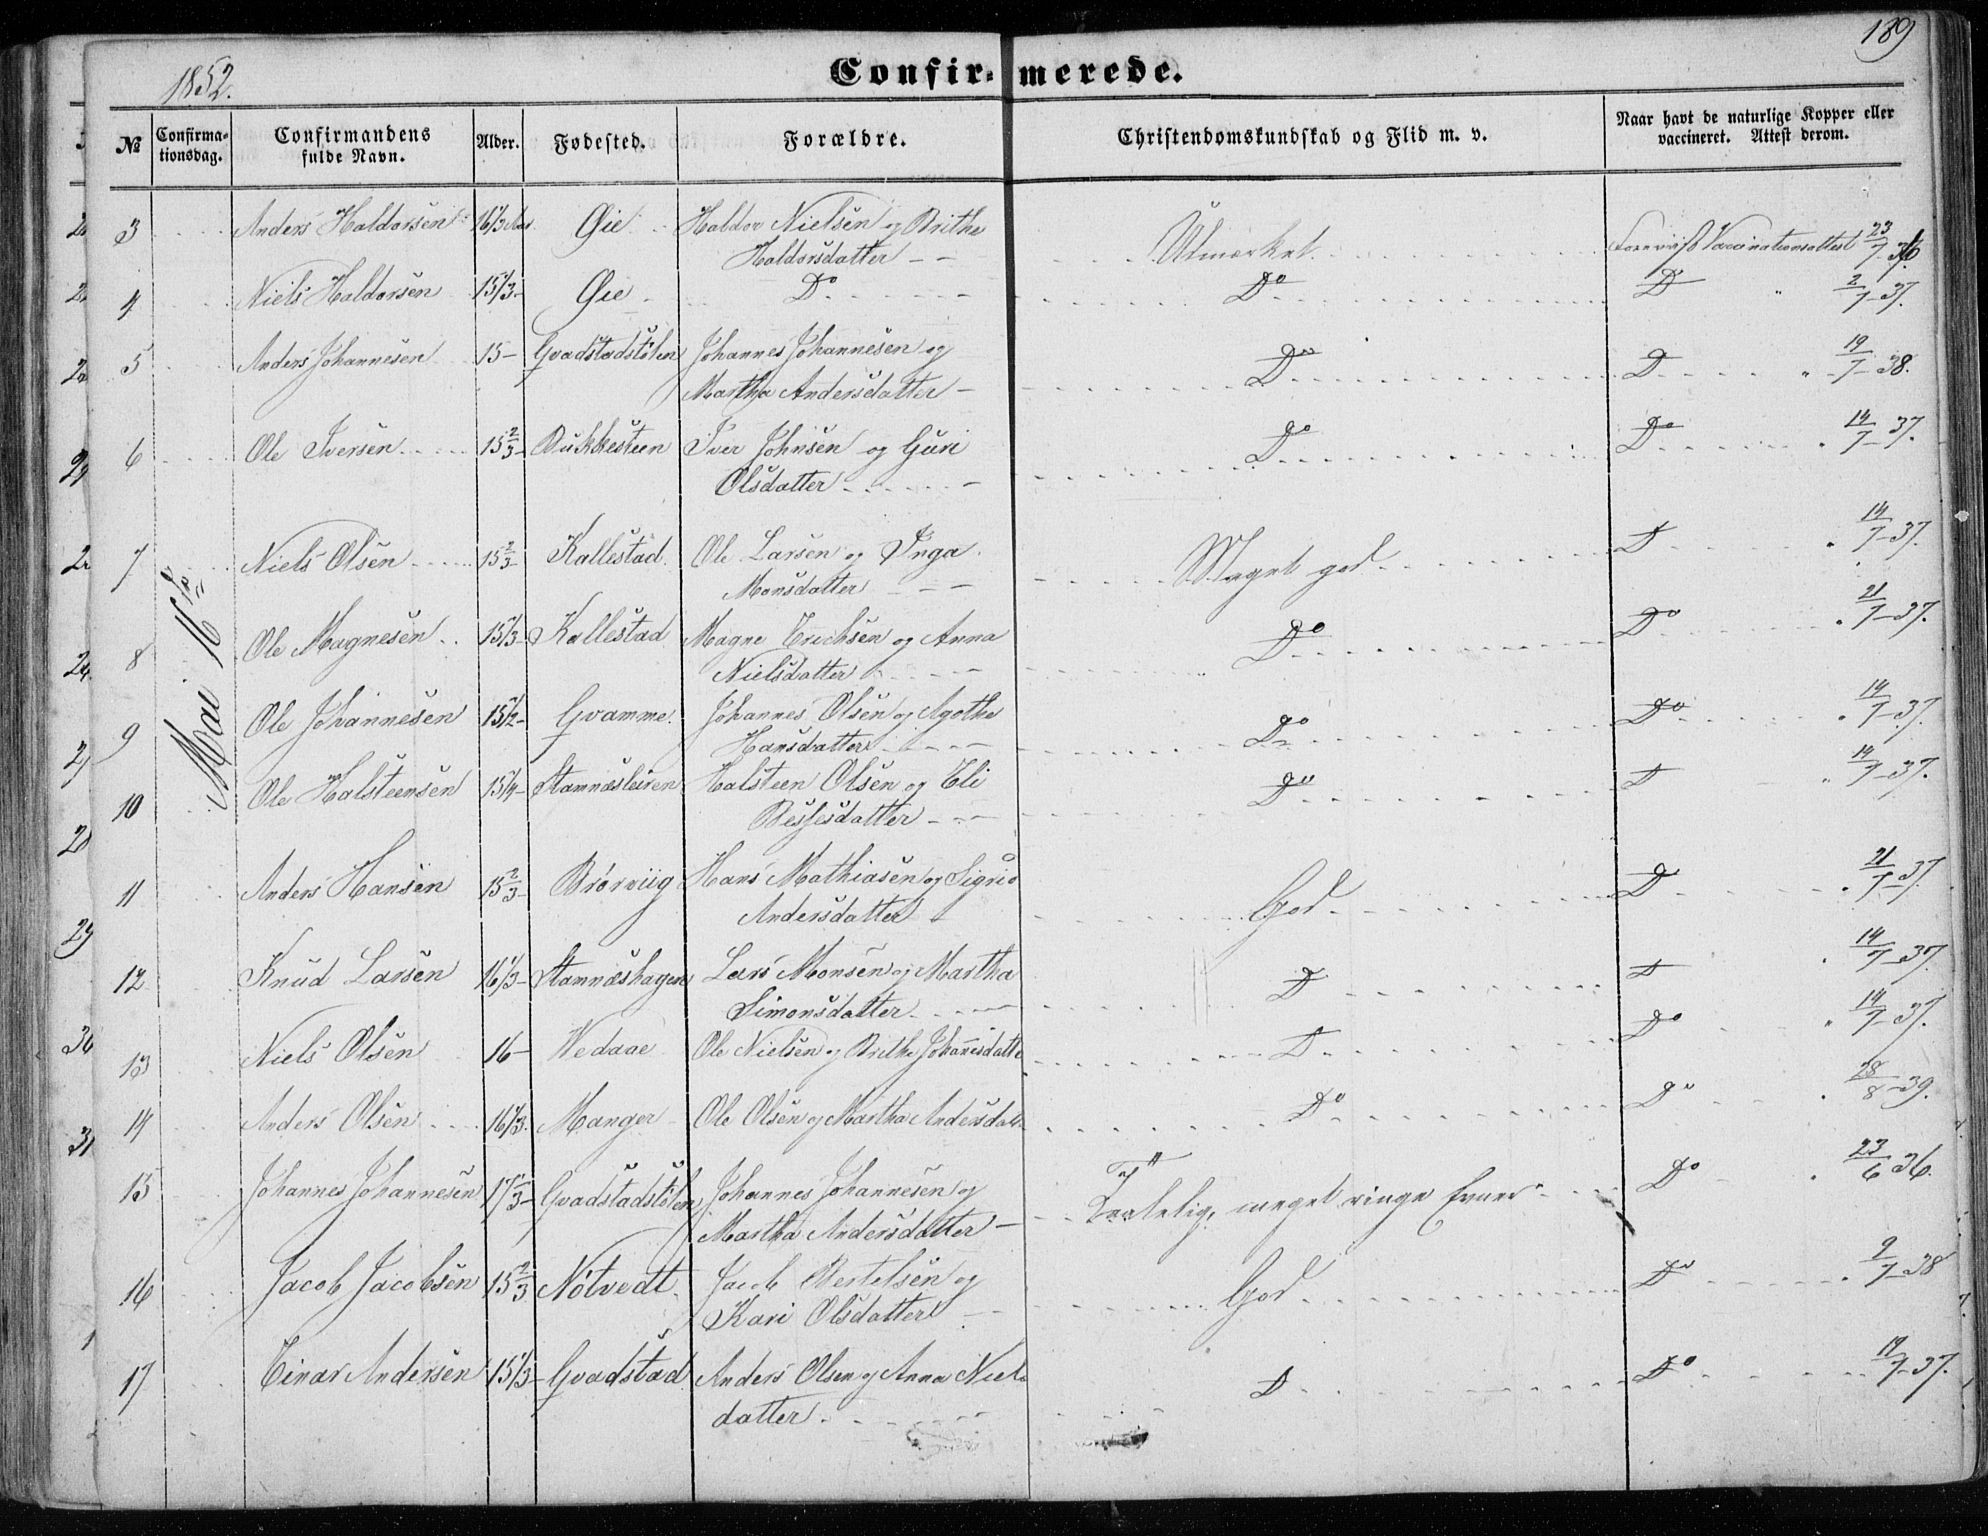 189
1852.
Confirmerede.
№ Confirmationsdag. Confirmandens fulde Navn. Alder. Fødested. Forældre. Christendomskundskab og Flid m. v. Naar havt de naturlige Kopper eller vaccineret. Attest derom.
Mai 16de
3 Anders Haldorsen 16 1/3 Aar Øie Haldor Nielsen og Brithe Udmærket Vaccinationsattest 23/7 36
Haldorsdatter
4 Niels Haldorsen 15 1/3 Øie Do Do Do " 2/7 37.
5 Anders Johannesen 15 Gvadstadstölen Johannes Johannesen og Do D " 19/7 38.
Martha Andersdatter
6 Ole Iversen 15 2/3 Bukkesteen Iver Johnsen og Guri Do Do " 14/7 37.
Olsdatter
7 Niels Olsen 15 2/3 Kallestad Ole Larsen og Inga Meget god D " 14/7 37.
Monsdatter
8 Ole Magnesen 15 1/3 Kallestad Magne Erichsen og Anna Do Do " 21/7 37.
Nielsdatter
9 Ole Johannesen 15 1/2 Gvamme Johannes Olsen og Agothe Do Do " 14/7 37.
Hansdatter
10 Ole Halsteensen 15 1/4 Stamnæsleiren Halsteen Olsen og Eli Do D " 14/7 37.
Bessesdatter
11 Anders Hansen 15 2/3 Brørviig Hans Mathiasen og Sigrid God D " 21/7 37.
Andersdatter
12 Knud Larsen 16 1/3 Stamnæshagen Lars Monsen og Martha D D " 14/7 37.
Simonsdatter
13 Niels Olsen 16 Hedaae Ole Nielsen og Brithe Johannesdatte D Do " 14/7 37.
14 Anders Olsen 16 1/3 Manger Ole Olsen og Martha Andersdatt Do Do " 28/8 39.
15 Johannes Johannesen 17 1/3 Gvadstadstölen Johannes Johannesen og Taalelig, meget ringe Evner Do " 23/6 36.
Martha Andersdatter
16 Jacob Jacobsen 15 2/3 Nötvedt Jacob Bertelsen og God Do " 9/7 38
Kari Olsdatter
17 Einar Andersen 15 1/3 Gvadstad Anders Olsen og Anna Niels D Do 19/7 37.
datter